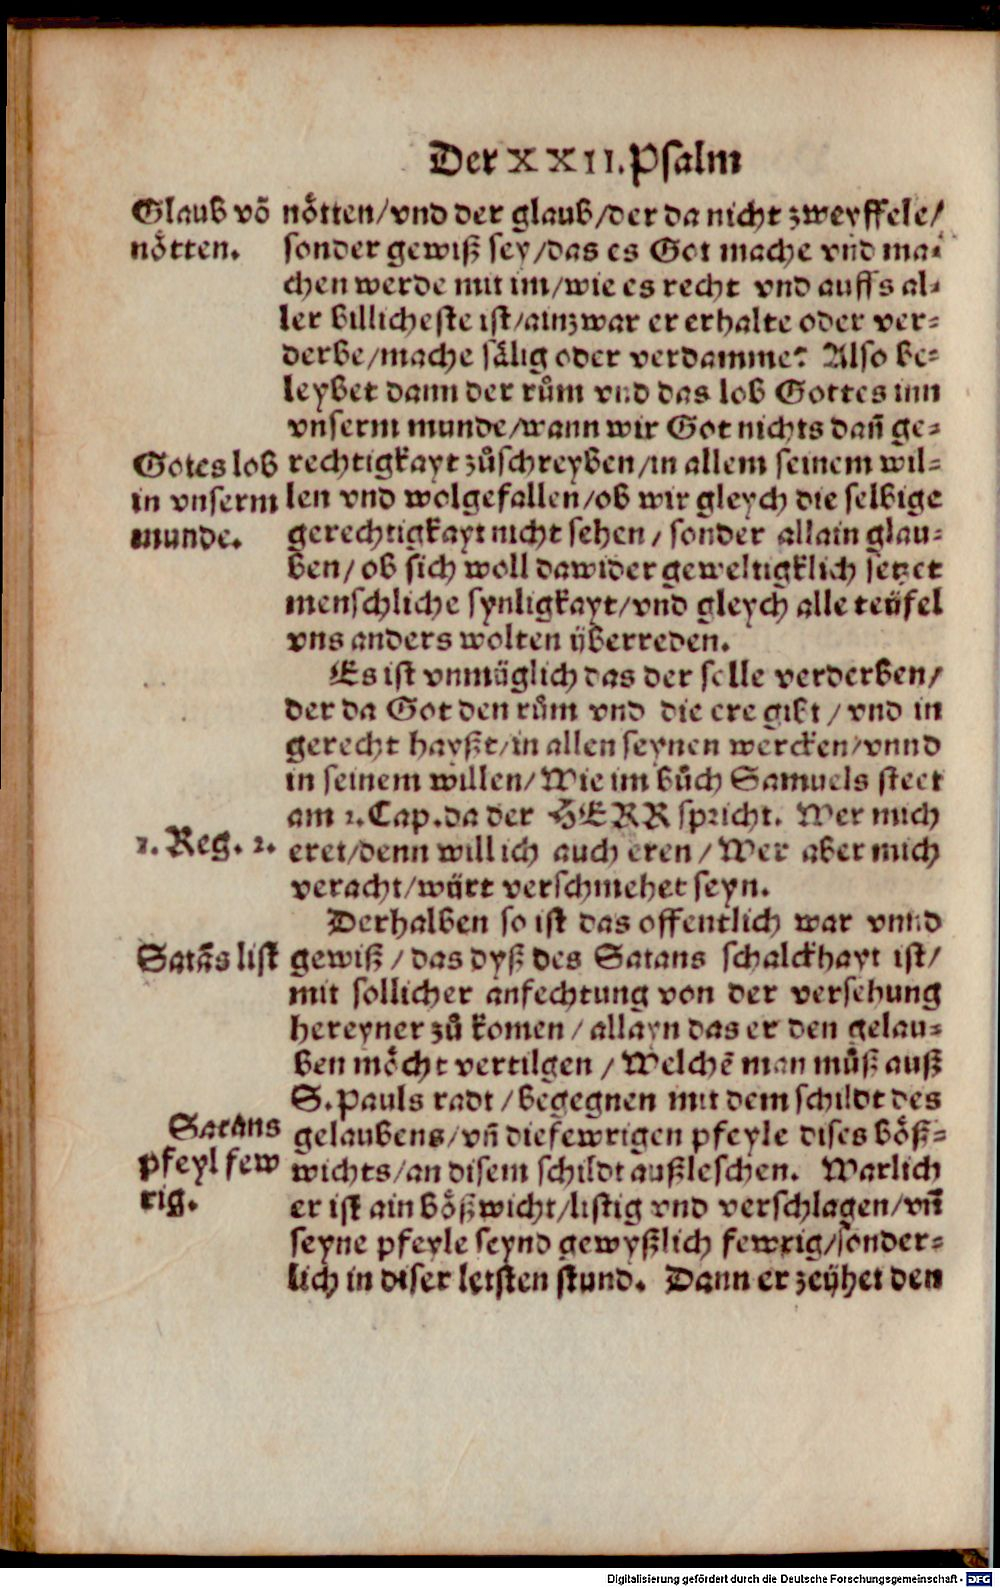 Der XXII. Psalm
Glaub võ
nötten.
nötten/vnd der glaub/der da nicht zweyffele/
sonder gewiß sey/das es Got mache vnd ma-
chen werde mit im/wie es recht vnd auffs al-
ler billicheste ist/ainzwar er erhalte oder ver-
derbe/mache sälig oder verdamme: Also be-
leybet dann der rům vnd das lob Gottes inn
vnserm munde/wann wir Got nichts dañ ge-
Gotes lob
in vnserm
munde.
rechtigkayt zůschreyben/in allem seinem wil-
len vnd wolgefallen/ob wir gleych die selbige
gerechtigkayt nicht sehen/ sonder allain glau-
ben/ ob sich woll dawider geweltigklich setzet
menschliche synligkayt/vnd gleych alle teüfel
vns anders wolten überreden.
Es ist vnmüglich das der solle verderben/
der da Got den rům vnd die ere gibt / vnd in
gerecht hayßt/in allen seynen wercken/vnnd
in seinem willen/Wie im bůch Samuels steet
am 2.Cap.da der HERR spricht. Wer mich
1. Reg. 2.
eret/denn will ich auch eren / Wer aber mich
veracht/würt verschmehet seyn.
Derhalben so ist das offentlich war vnnd
Satãs list
gewiß / das dyß des Satans schalckhayt ist/
mit sollicher anfechtung von der versehung
hereyner zů komen / allayn das er den gelau-
ben möcht vertilgen / Welchẽ man můß auß
S. Pauls radt / begegnen mit dem schildt des
Satans
pfeyl few
rig.
gelaubens/vñ die fewrigen pfeyle dises böß-
wichts/an disem schildt außleschen. Warlich
er ist ain bößwicht/listig vnd verschlagen/vñ
seyne pfeyle seynd gewyßlich fewrig/sonder-
lich in diser letsten stund. Dann er zeyhet den
Digitalisierung gefördert durch die Deutsche Forschungsgemeinschaft - DFG